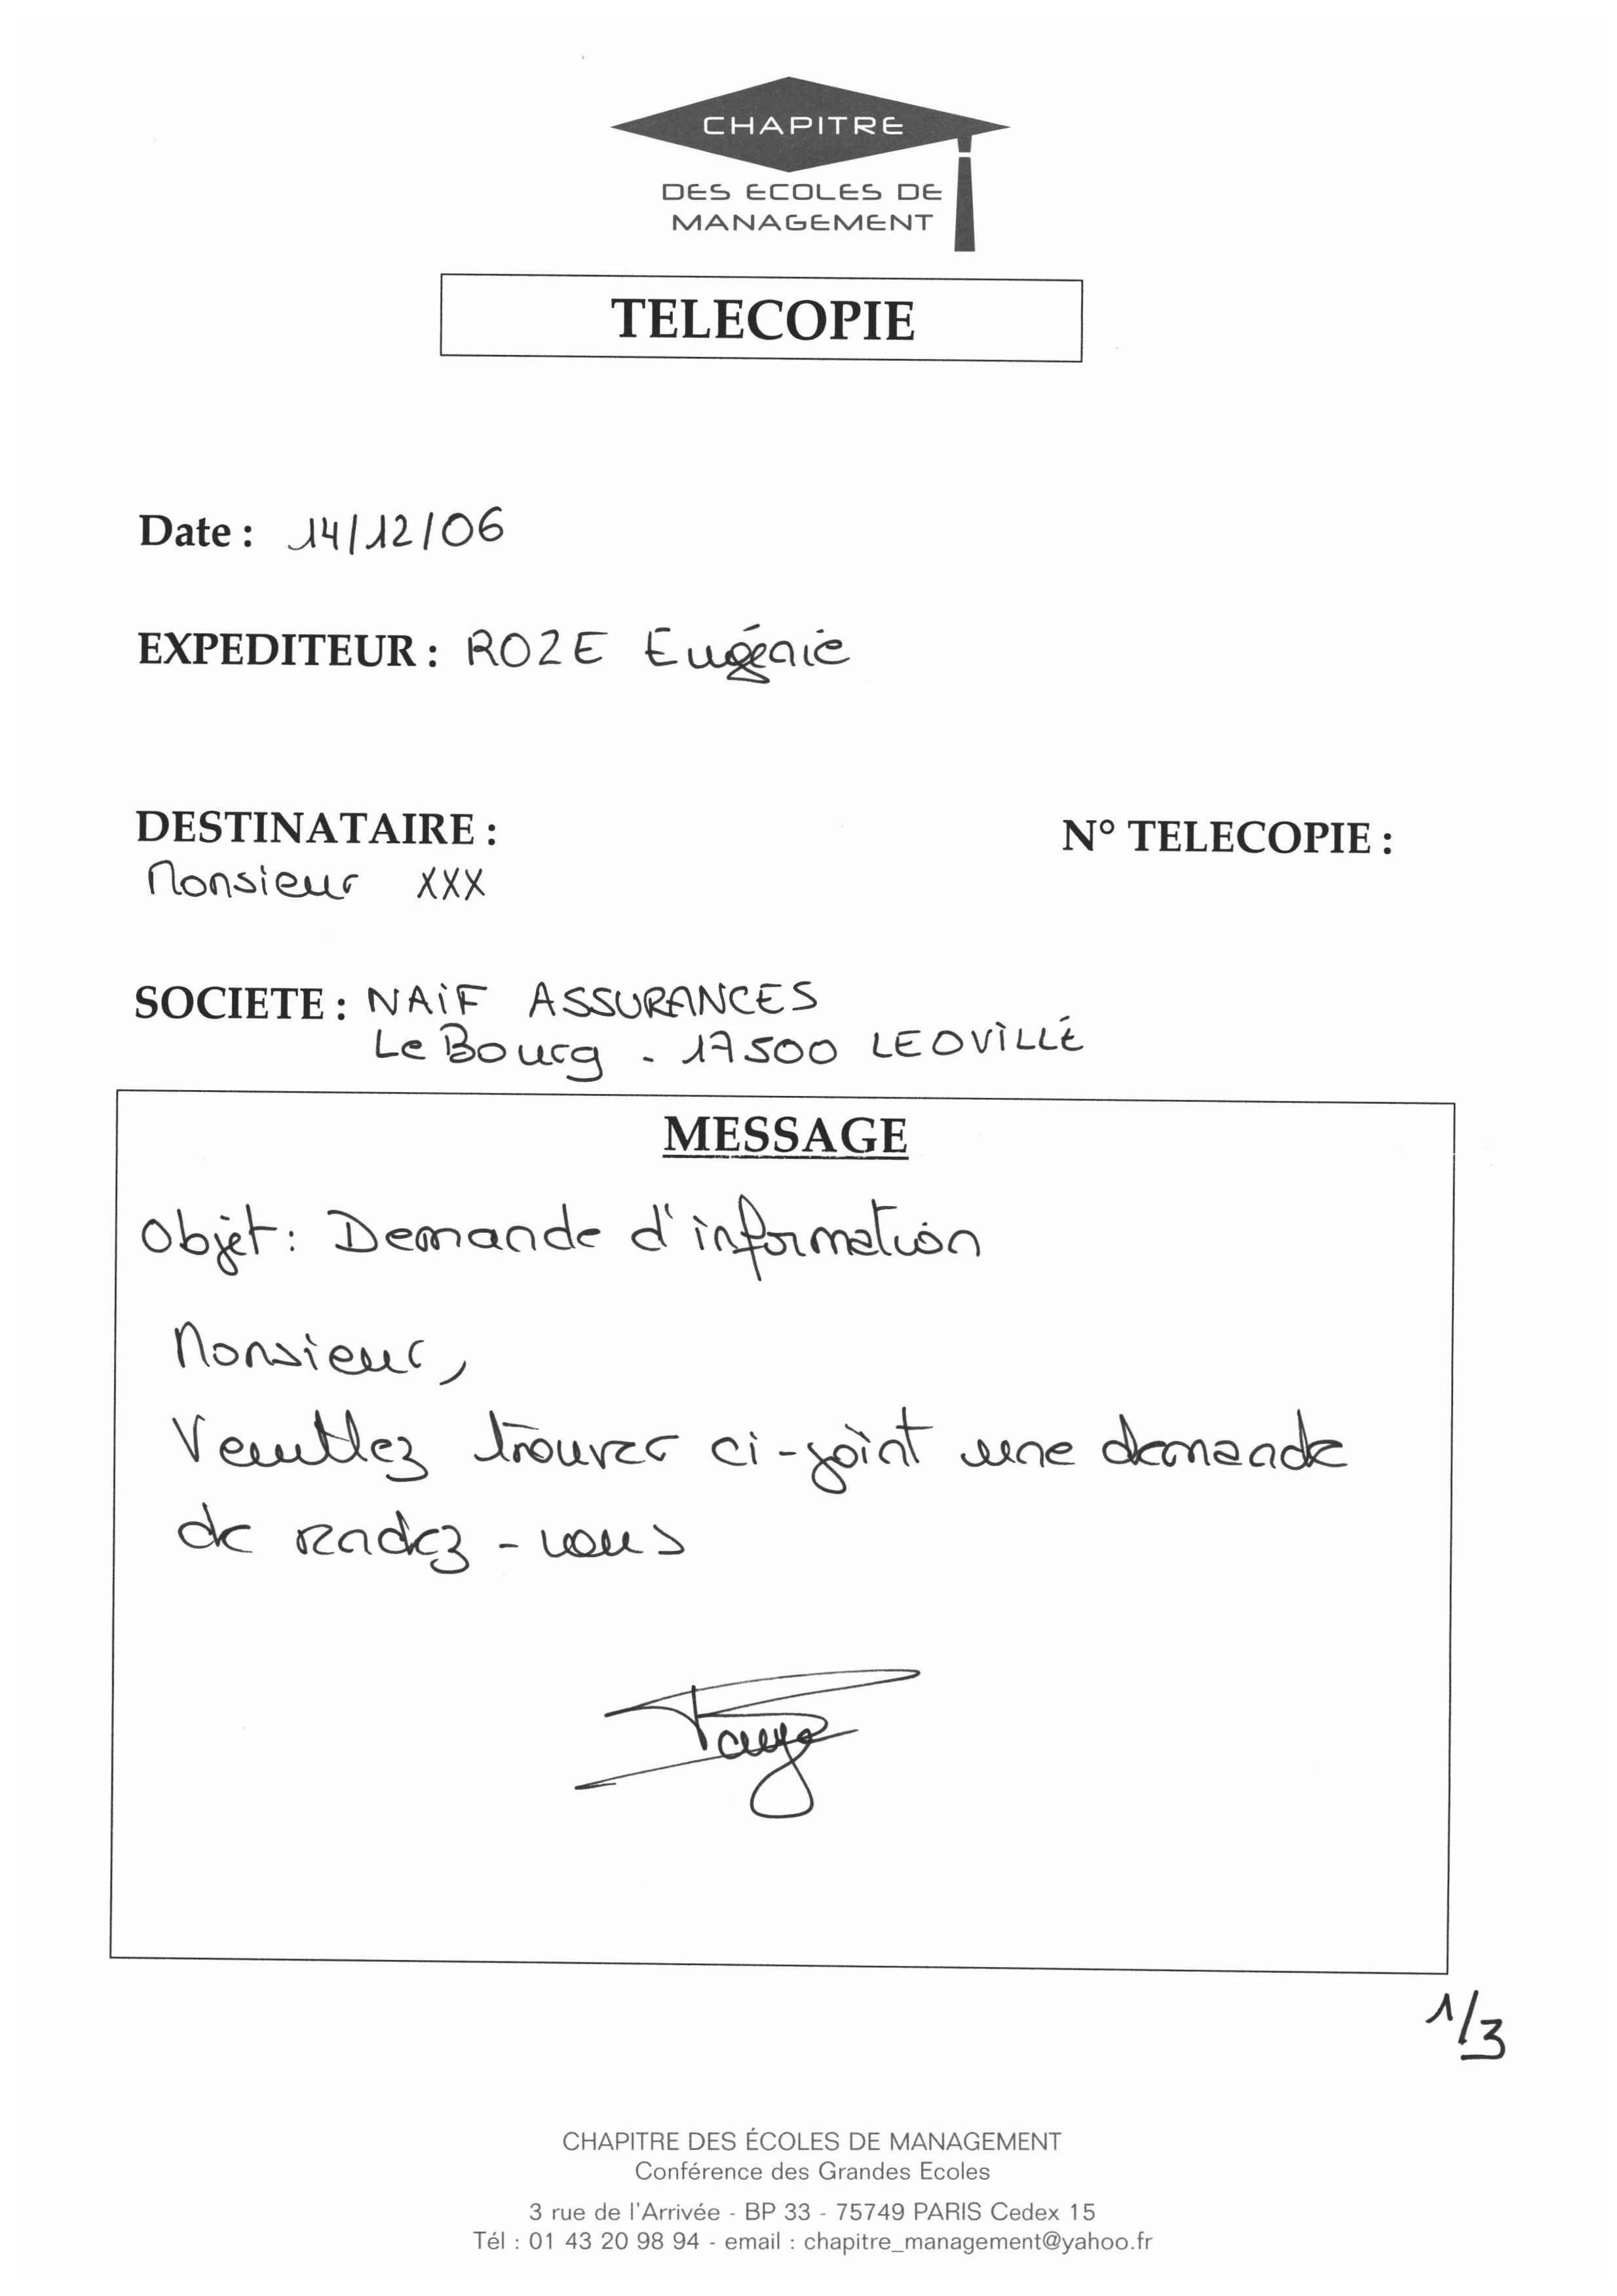 CHAPITRE
DES ECOLES DE
MANAGEMENT
TELECOPIE
Date : 14/12/06
EXPEDITEUR : ROZE Eugénie
DESTINATAIRE : N° TELECOPIE :
Monsieur XXX
SOCIETE : NAIF ASSURANCES
Le Bourg - 17500 LEOVILLE
MESSAGE
Objet : Demande d'information
Monsieur,
Veuillez trouver ci-joint une demande
de radez-vous
1/3
CHAPITRE DES ÉCOLES DE MANAGEMENT
Conférence des Grandes Ecoles
3 rue de l'Arrivée - BP 33 - 75749 PARIS Cedex 15
Tél : 01 43 20 98 94 - email : chapitre_management@yahoo.fr